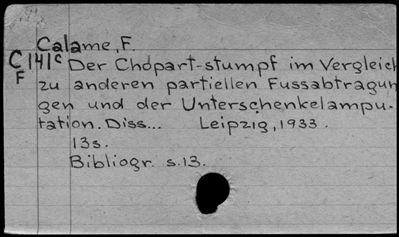 Calame, F.
C141c Der Chopart-stumpf im Vergleich
F zu anderen partiellen Fussabtragun
gen und der Unterschenkelampu-
tation. Diss... Leipzig, 1933.
13s.
Bibliogr. s.13.